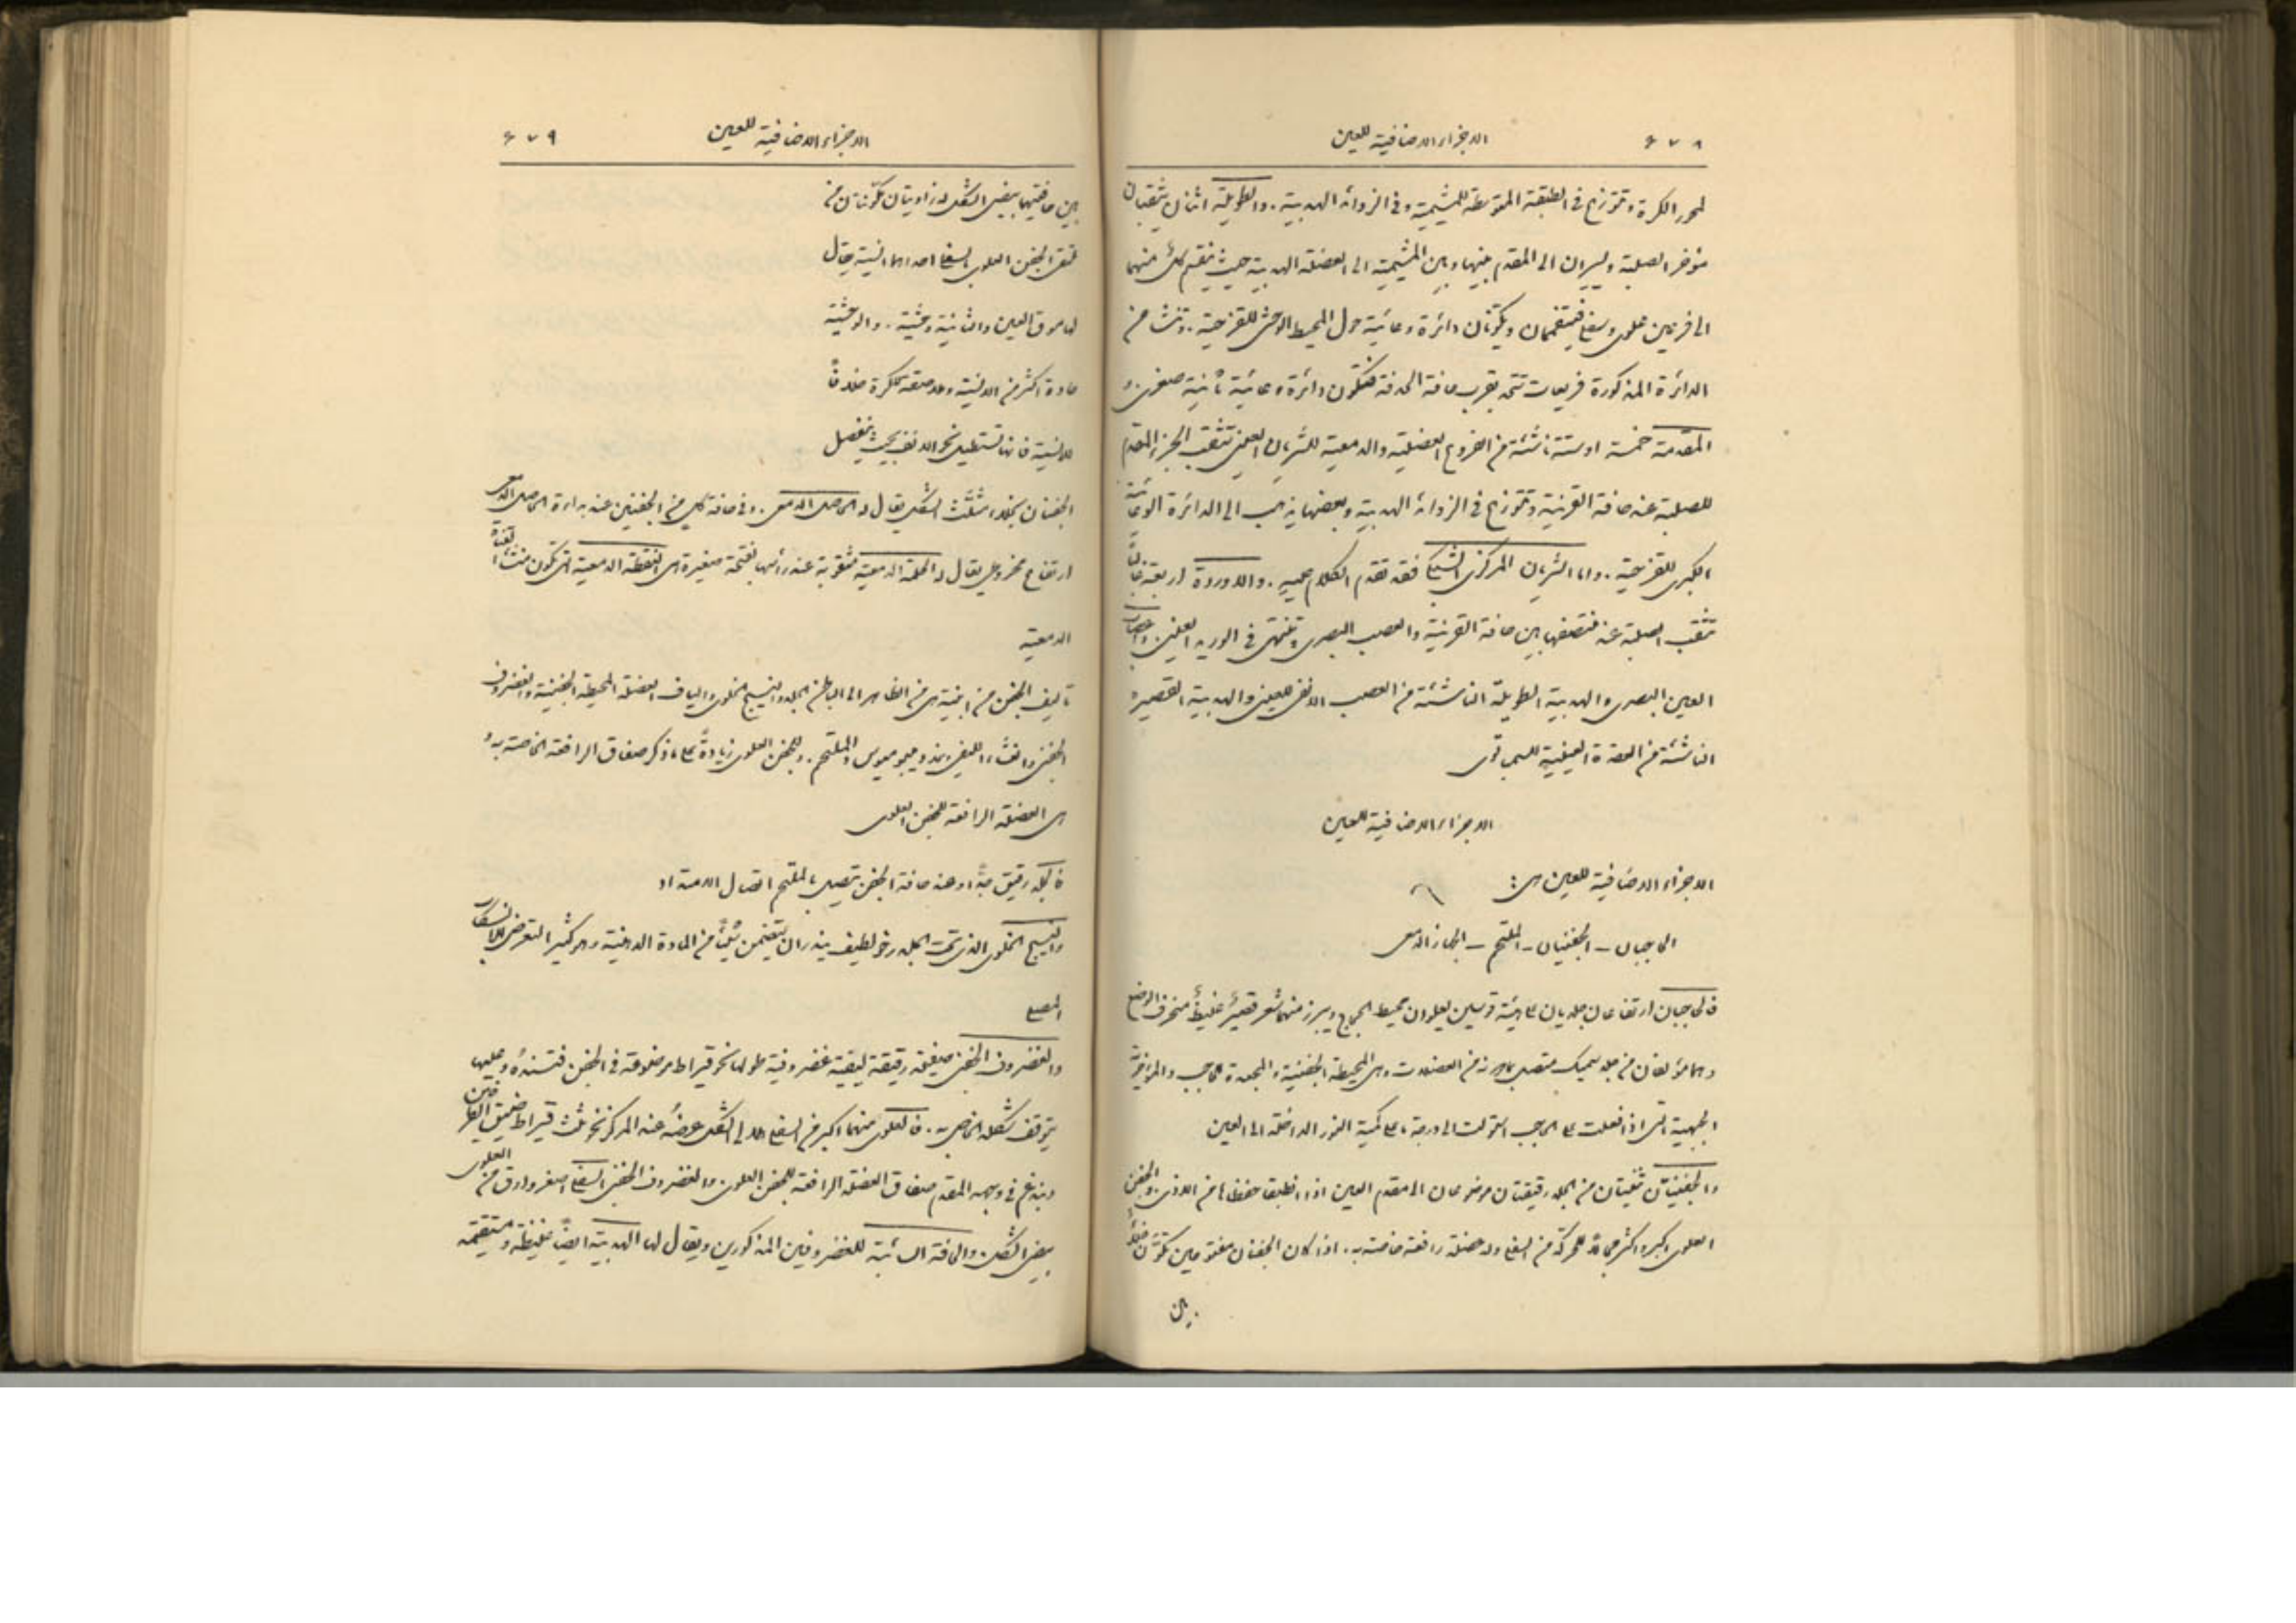 ٦٧٨ الاجزاء الاضافية للعين
لمحور الكرة وتتوزع في الطبقة المتوسطة للمشيمية وفي الزوائد الهدبية. والطويلة اثنان يثقبان
مؤخر الصلبة ويسيران الى المقدم بينها وبين المشيمية الى العضلة الهدبية حيث ينقسم كل منهما
الى فرعين علوي وسفلي فيتفممان ويكوّنان دائرة وعائية حول المحيط الوحشي للقزحية. وتنشأ من
الدائرة المذكورة فريعات تتحد بقرب حافة الحدقة فتكوّن دائرة وعائية ثانية صغرى. و
المقدمة خمسة او ستة ناشئة من الفروع العضلية والدمعية للشريان العيني تثقب الجزء المقدم
للصلبة عند حافة القرنية وتتوزع في الزوائد الهدبية وبعضها يذهب الى الدائرة الوعائية
الكبرى للقزحية. واما الشريان المركزي للشبكية فقد تقدم الكلام عليه. والاوردة اربعة غالباً
تثقب الصلبة عند منتصفها بين حافة القرنية والعصب البصري وتنتهي في الوريد العيني. واعصاب
العين البصري والهدبية الطويلة الناشئة من العصب الانفي للعيني والهدبية القصيرة
الناشئة من العقدة العينية للسمباتوي
الاجزاء الاضافية للعين
الاجزاء الاضافية للعين هي:
الحاجبان – الجفنيان – الملتحم – الجهاز الدمعي
فالحاجبان ارتفاعان جلديان على هيئة قوسين يعلوان محيط الحجاج ويبرز منهما شعر قصير غليظ منحرف الوضع
وهما مؤلفان من جلد سميك متصل بما دونه من العضلات وهي المحيطة الجفنية والمجعدة للحاجب والمؤخرية
الجبهية التي اذا فعلت على الحاجب استولت الى درجة ما على كمية النور الداخلة الى العين
والجفنيان ثنيتان من الجلد رقيقتان موضوعتان الى مقدم العين اذا انطبقا حفظاها من الاذى. والجفن
العلوي اكبر واكثر حركة من السفلي وله عضلة رافعة خاصة به. اذا كان الجفنان مفتوحين تكوّن خلاء
بين
٦٧٩ الاجزاء الاضافية للعين
بين حافتيهما بيضي الشكل له زاويتان مكوّنتان من
ملتقى الجفن العلوي بالسفلي احداهما انسية يقال
لها موق العين والثانية وحشية. والوحشية
حادة اكثر من الانسية وملاصقة للكرة خلافاً
للانسية فانها تستطيل نحو الانف بحيث ينفصل
الجفنان بخلاء مثلث الشكل يقال له الحاصل الدمعي. وفي حافة كل من الجفنين عند بداءة الحاصل الدمعي
ارتفاع مخروطي يقال له الحلمة الدمعية مثقوبة عند رأسها بفتحة صغيرة هي النقطة الدمعية التي تكون منشأ القناة
الدمعية
تأليف الجفن من ابنية هي من الظاهر الى الباطن الجلد والنسيج الخلوي والياف العضلة المحيطة الجفنية والغضروف
الجفني والغشاء الليفي وغدد ميبوميوس والملتحم. وللجفن العلوي زيادة على ما ذكر صفاق الرافعة الخاصة به و
هي العضلة الرافعة للجفن العلوي
فالجلد رقيق جداً وعند حافة الجفن يتصل بالملتحم اتصال الامتداد
والنسيج الخلوي الذي تحت الجلد رخو لطيف يندر ان يتضمن شيئاً من المادة الدهنية وهو كثير التعرض للانسكاب
المصلي
والغضروف الجفني صفيحة رقيقة ليفية غضروفية طولها نحو قيراط موضوعة في الجفن فتسنده وعليها
يتوقف شكله الخاص به. فالعلوي منهما اكبر من السفلي هلالي الشكل عرضه عند المركز نحو ثلث قيراط ضيق الطرفين
ويندغم في وجهه المقدم صفاق العضلة الرافعة للجفن العلوي. والغضروف الجفني السفلي اصغر وارق من العلوي
بيضي الشكل. والحافة السائبة للغضروفين المذكورين ويقال لها الهدبية ايضاً غليظة ومستقيمة